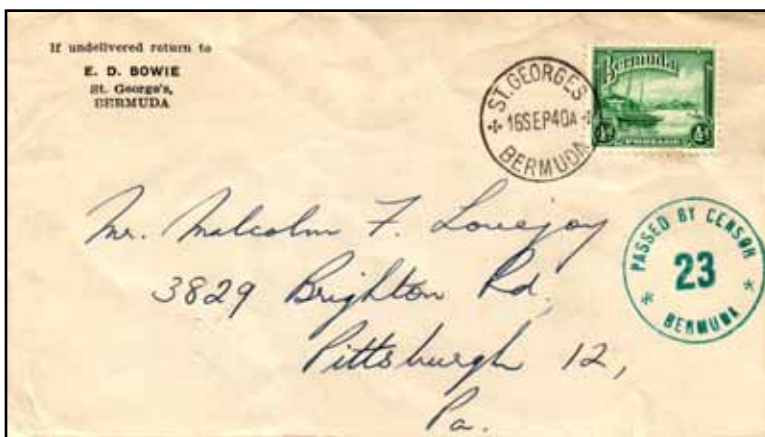 If undelivered return to
E. D. BOWIE
St. George's,
BERMUDA
ST. GEORGES
16 SEP 40 A
BERMUDA
Bermuda
POSTAGE
Mr. Malcolm F. Lovejoy
3829 Brighton Rd,
Pittsburgh 12,
Pa.
PASSED BY CENSOR
23
BERMUDA